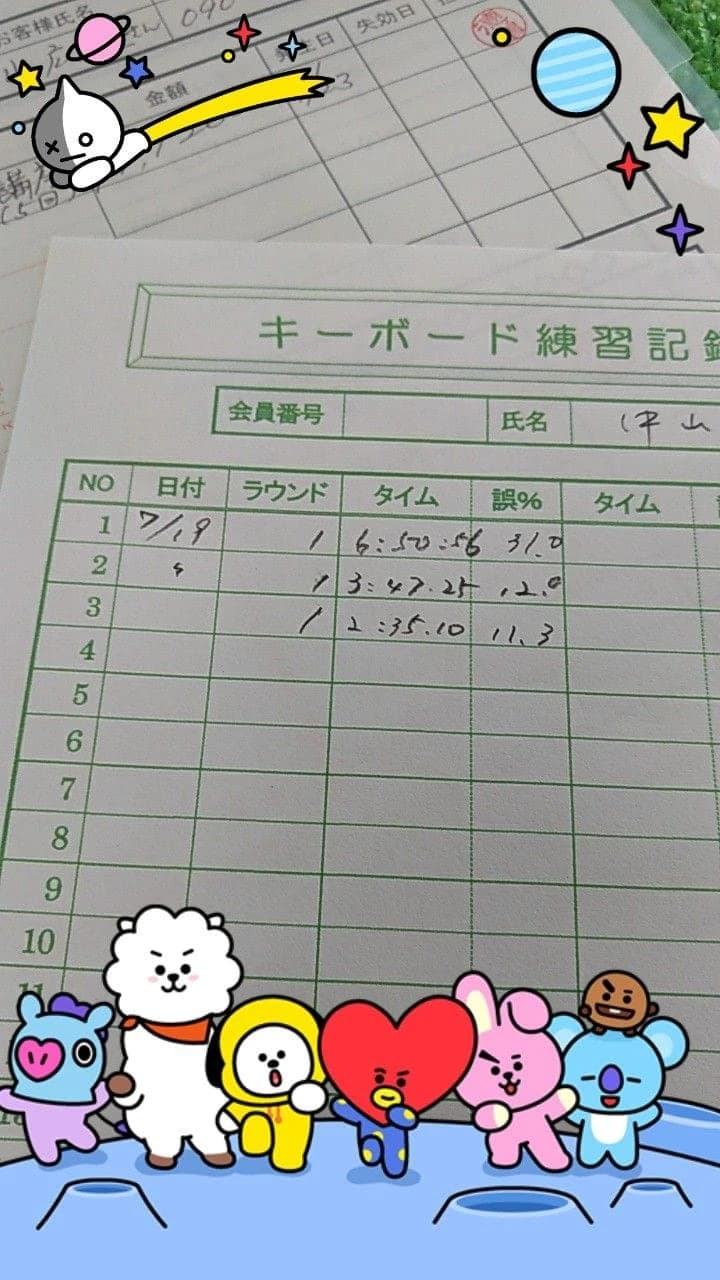 お客様氏名
さん 090
金額
失効日
キーボード練習記録
会員番号 氏名
NO 日付 ラウンド タイム 誤% タイム
1 7/19 1 6:50:56 31.0
2 〃 1 3:47.25 12.0
3 1 2:35.10 11.3
4
5
6
7
8
9
10
11